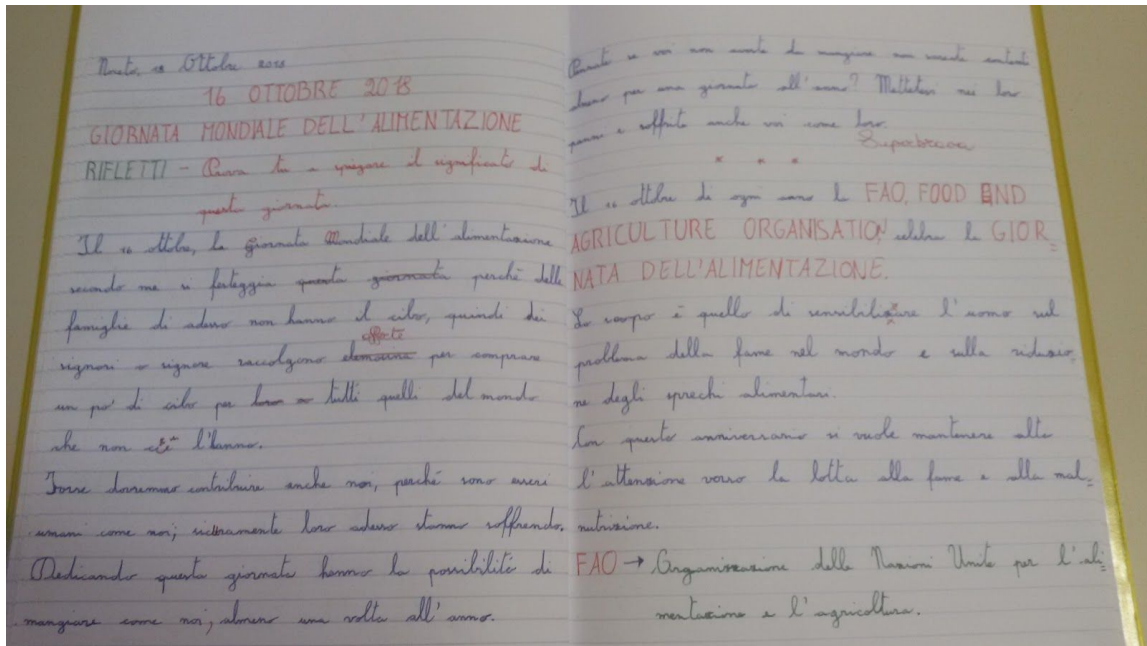 16 Ottobre 2018
16 OTTOBRE 2018
GIORNATA MONDIALE DELL'ALIMENTAZIONE
RIFLETTI - Prova tu a spiegare il significato di
questa giornata.
Il 16 ottobre, la Giornata Mondiale dell'alimentazione
secondo me si festeggia questa giornata perché delle
famiglie di adesso non hanno il cibo, quindi dei
offerte
signori o signore raccolgono per comprare
un po' di cibo per loro tutti quelli del mondo
che non l'hanno.
Forse dovremmo contribuire anche noi, perché sono esseri
umani come noi; sicuramente loro adesso stanno soffrendo.
Dedicando questa giornata hanno la possibilità di
mangiare come noi, almeno una volta all'anno.
Pensate se voi non avete da mangiare non vorreste
almeno per una giornata all'anno? Mettetevi nei loro
panni e soffrite anche voi come loro.
Superbravo
* * *
Il 16 ottobre di ogni anno la FAO, FOOD AND
AGRICULTURE ORGANISATION celebra la GIOR=
NATA DELL'ALIMENTAZIONE.
Lo scopo è quello di sensibilizzare l'uomo sul
problema della fame nel mondo e sulla riduzio=
ne degli sprechi alimentari.
Con questo anniversario si vuole mantenere alta
l'attenzione verso la lotta alla fame e alla mal=
nutrizione.
FAO → Organizzazione delle Nazioni Unite per l'ali=
mentazione e l'agricoltura.